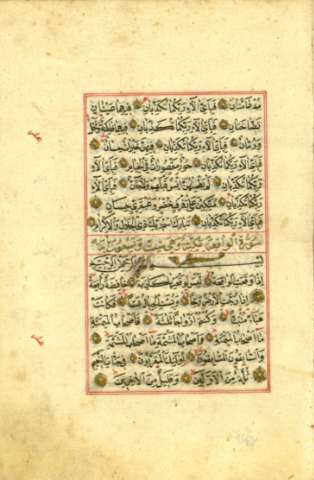 مُدْهَامَّتَانِ فَبِأَيِّ آلَاءِ رَبِّكُمَا تُكَذِّبَانِ فِيهِمَا عَيْنَانِ
نَضَّاخَتَانِ فَبِأَيِّ آلَاءِ رَبِّكُمَا تُكَذِّبَانِ فِيهِمَا فَاكِهَةٌ وَنَخْلٌ
وَرُمَّانٌ فَبِأَيِّ آلَاءِ رَبِّكُمَا تُكَذِّبَانِ فِيهِنَّ خَيْرَاتٌ حِسَانٌ
فَبِأَيِّ آلَاءِ رَبِّكُمَا تُكَذِّبَانِ حُورٌ مَقْصُورَاتٌ فِي الْخِيَامِ فَبِأَيِّ آلَاءِ
رَبِّكُمَا تُكَذِّبَانِ لَمْ يَطْمِثْهُنَّ إِنْسٌ قَبْلَهُمْ وَلَا جَانٌّ فَبِأَيِّ آلَاءِ
رَبِّكُمَا تُكَذِّبَانِ مُتَّكِئِينَ عَلَى رَفْرَفٍ خُضْرٍ وَعَبْقَرِيٍّ حِسَانٍ
فَبِأَيِّ آلَاءِ رَبِّكُمَا تُكَذِّبَانِ تَبَارَكَ اسْمُ رَبِّكَ ذِي الْجَلَالِ وَالْإِكْرَامِ
سورة الواقعة مكية وهي ست وتسعون آية
بِسْمِ اللهِ الرَّحْمَنِ الرَّحِيمِ
إِذَا وَقَعَتِ الْوَاقِعَةُ لَيْسَ لِوَقْعَتِهَا كَاذِبَةٌ خَافِضَةٌ رَافِعَةٌ
إِذَا رُجَّتِ الْأَرْضُ رَجًّا وَبُسَّتِ الْجِبَالُ بَسًّا فَكَانَتْ
هَبَاءً مُنْبَثًّا وَكُنْتُمْ أَزْوَاجًا ثَلَاثَةً فَأَصْحَابُ الْمَيْمَنَةِ
مَا أَصْحَابُ الْمَيْمَنَةِ وَأَصْحَابُ الْمَشْئَمَةِ مَا أَصْحَابُ الْمَشْئَمَةِ
وَالسَّابِقُونَ السَّابِقُونَ أُولَئِكَ الْمُقَرَّبُونَ فِي جَنَّاتِ النَّعِيمِ
ثُلَّةٌ مِنَ الْأَوَّلِينَ وَقَلِيلٌ مِنَ الْآخِرِينَ